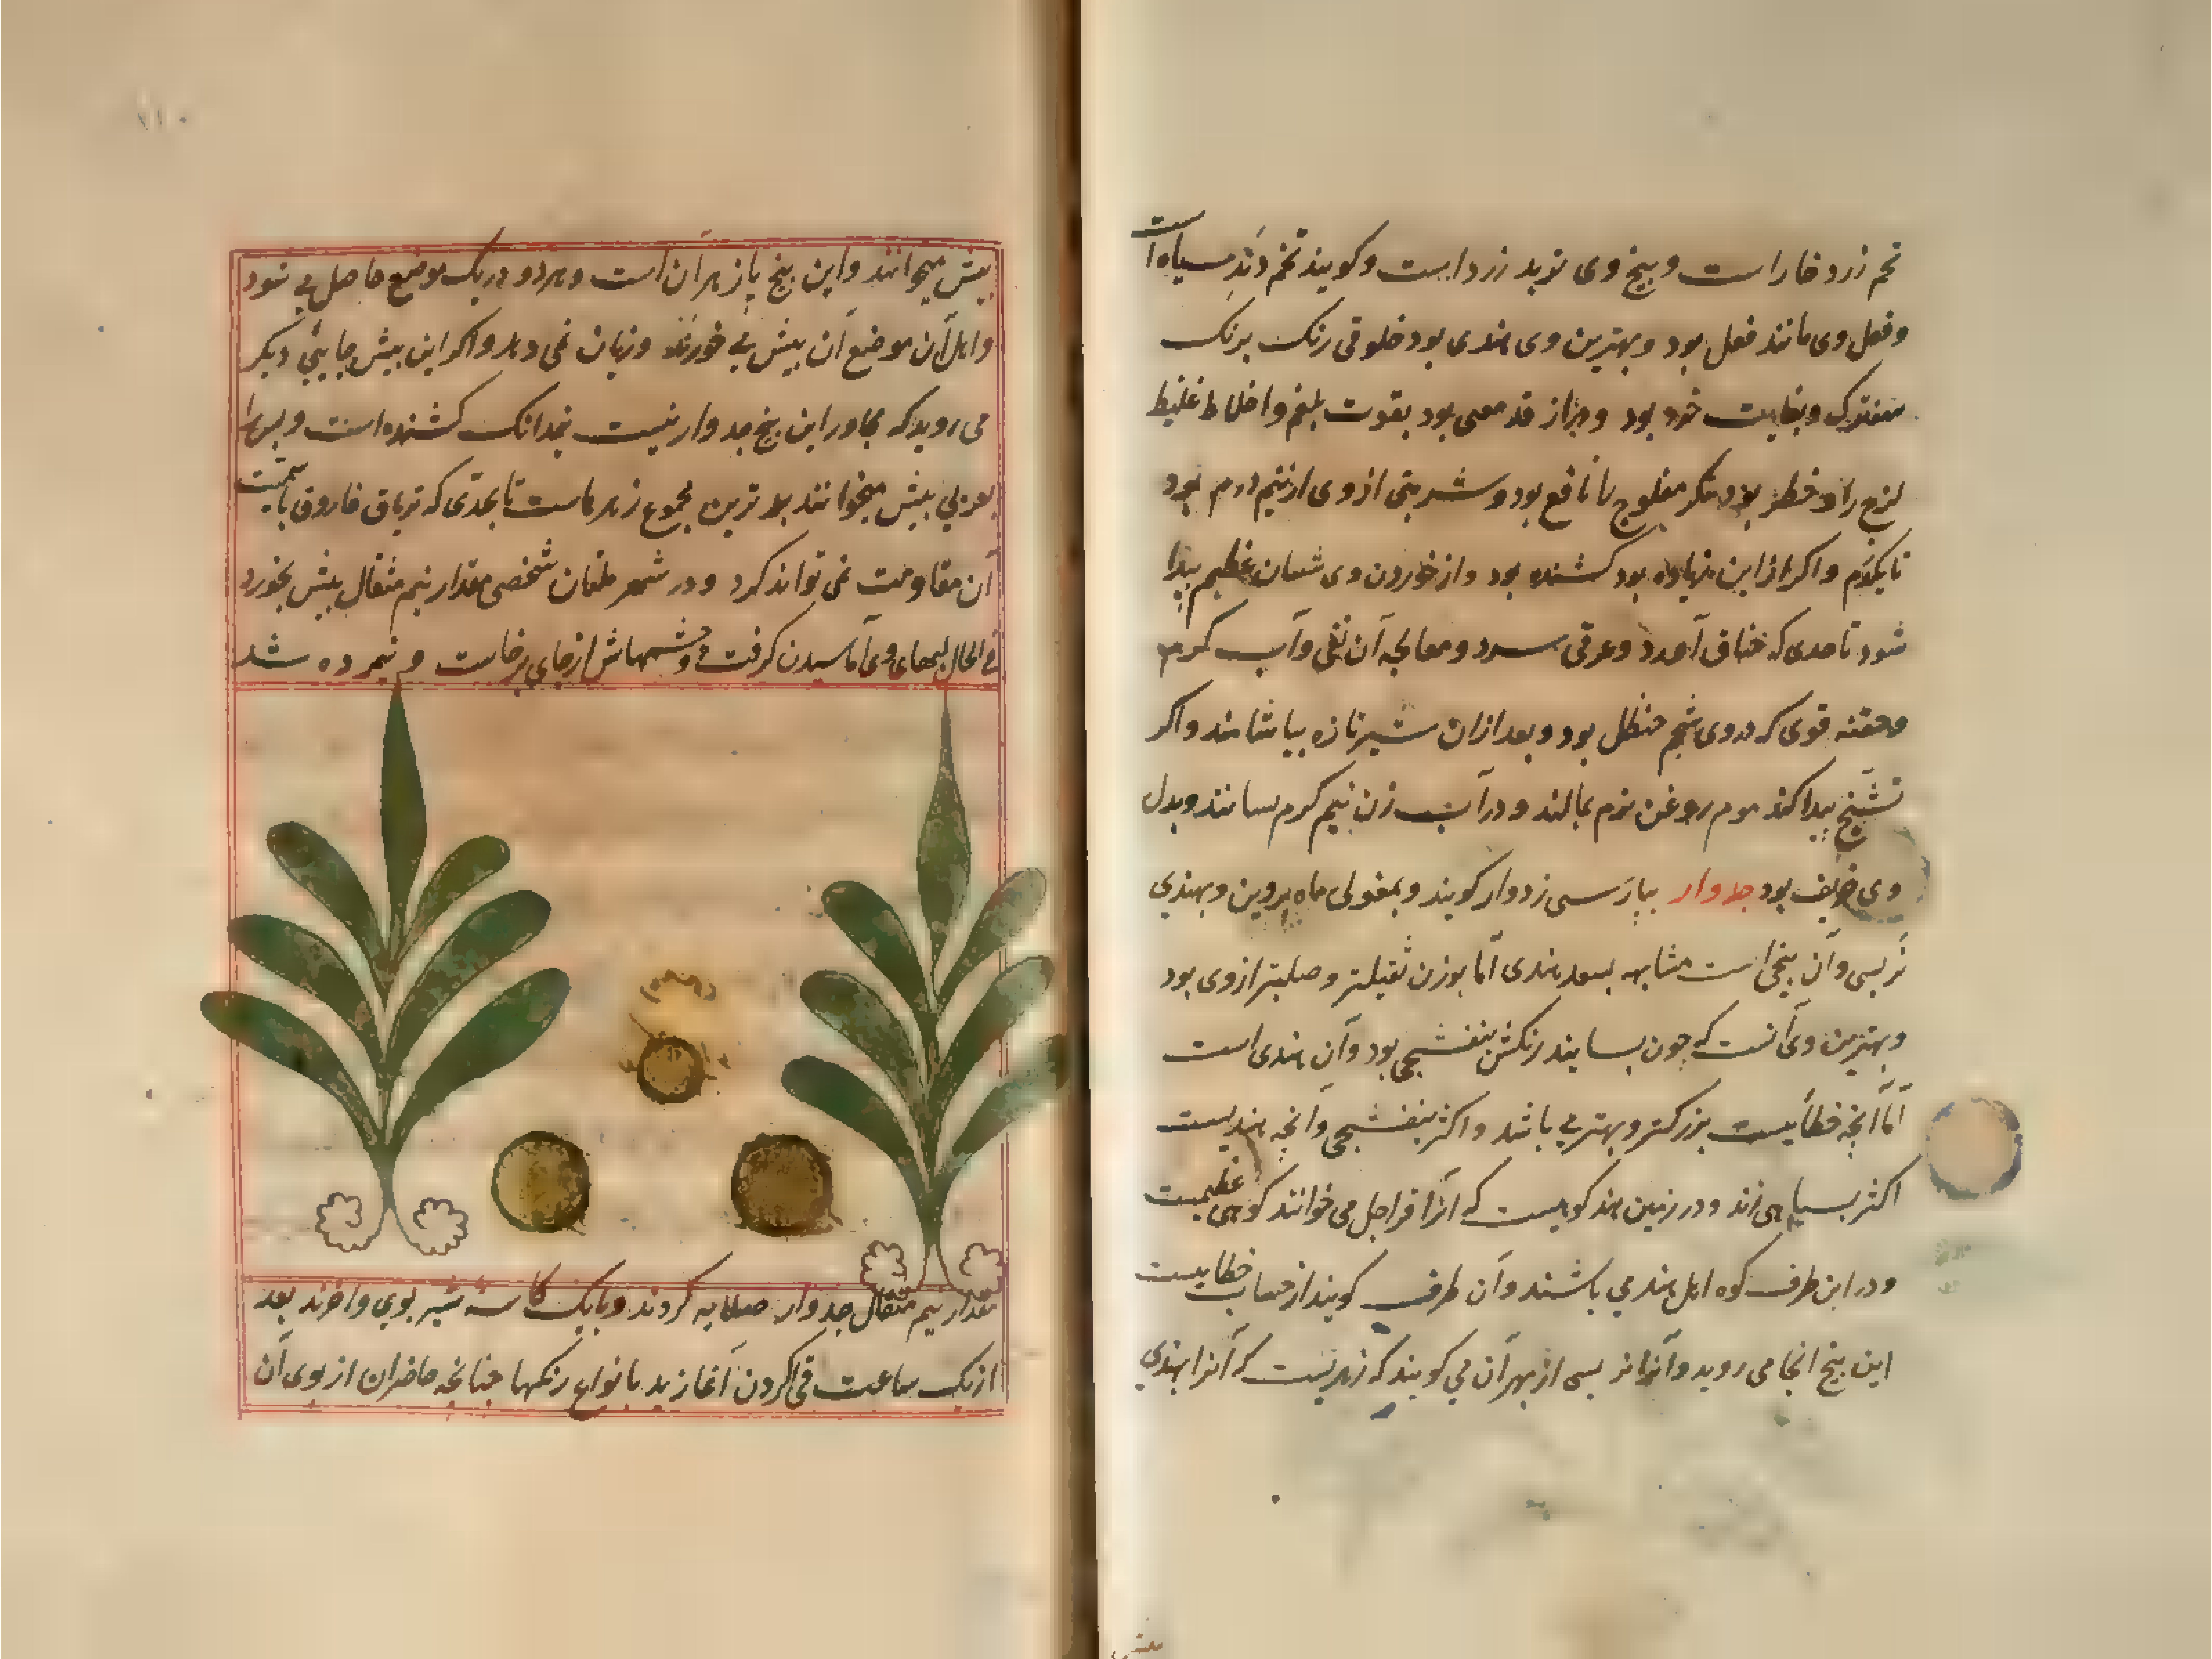 تخم زرد خار است و بیخ وی تربد زرد است و کویند تخم دند سیاه است
و فعل وی مانند فعل بود و بهترین وی هندی بود خلوقی رنک برنک
و بغایت خرد بود و جزاز قد معی بود بقوت بلغم و اخلاط غلیظ
لزج را و خطر بود مکر مفلوج را نافع بود و شربتی از وی از نیم درم بود
تا یکدرم و اکر ازین زیاده بود کشنده بود و از خوردن وی غظیم پیدا
شود تا حدی که خناق آورد و عرقی سرد و معالجه آن بقی و آب کرم
و حقنه قوی که در وی شحم حنظل بود و بعد ازان شیر تازه بیاشامند و اکر
تشنج پیدا کند موم روغن نرم بمالند و در آب زن نیم کرم نشانند و بدل
وی خریف بود جدوار بپارسی زدوار کویند و بمغولی ماه پروین و بهندی
نربسی و آن بیخی است مشابهه بسعد هندی اما بوزن ثقیلتر و صلبتر از وی بود
و بهترین وی آنست که چون بسایند رنکش بنفشجی بود و آن هندی است
اما آنچه خطائیست بزرکتر و بهتر می باشد و اکثر بنفشجی و آنچه هندیست
اکثر بسیاهی زند و در زمین هند کوهیست که آنرا قراجل می خوانند کوهی عظیمست
و در این طرف کوه اهل هند می باشند و آن طرف کویند از حساب خطاییست
این بیخ آنجا می روید و آنرا نربسی از بهر آن می کویند که زهریست که آنرا بهندی
بیش میخوانند و این بیخ پازهر آن است و هر دو در یک موضع حاصل می شود
و اهل آن موضع آن بیش می خورند و زیان نمی دهد و اکر این بیش جایی دیکر
می روید که مجاور این بیخ جدوار نیست بخدانک کشنده است و بیش را
بعربی بیش میخوانند بدترین مجموع زهرهاست تا بحدی که تریاق فاروق با سمیت
آن مقاومت نمی تواند کرد و در شهر ملتان شخصی مقدار نیم مثقال بیش بخورد
فی الحال لبهای وی آماسیدن کرفت و چشمهاش از جای برخاست و پژمرده شد
مقدار نیم مثقال جدوار صلایه کردند و با یک کاسه شیر بوی دادند بعد
از یک ساعت قی کردن آغازید بانواع رنکها چنانچه حاضران از بوی آن